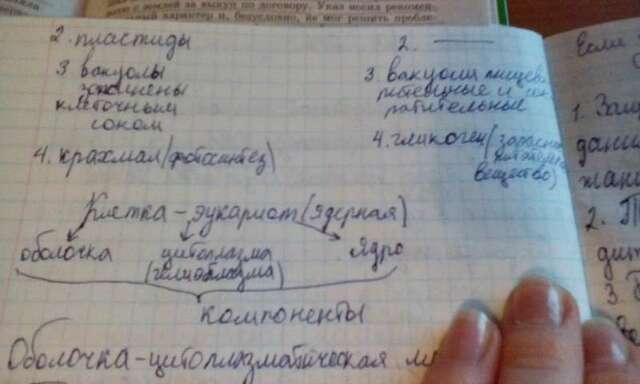 с землей за выкуп по договору. Указ носил рекомен-
характер и, безусловно, не мог решить пробле-
2. пластиды
3 вакуолы
заполнены
клеточным
соком
4. крахмал (фотосинтез)
2. ———
3. вакуоли пищева-
рительные и
4. гликоген (
вещество)
Клетка – эукариот (ядерная)
оболочка цитоплазма ядро
(гиалоплазма)
компоненты
Оболочка – цитоплазматическая
Если
1. Защ
2.
3.